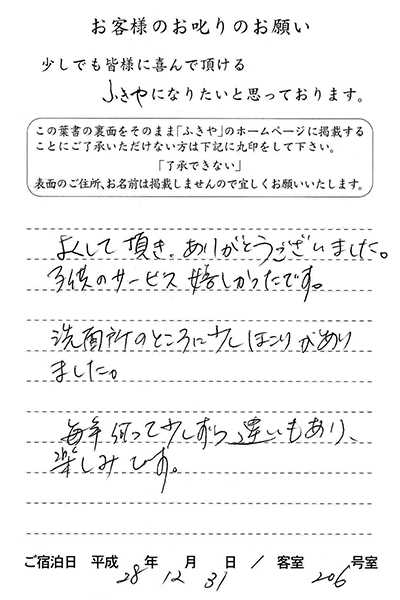 お客様のお叱りのお願い
少しでも皆様に喜んで頂ける
ふきやになりたいと思っております。
この葉書の裏面をそのまま「ふきや」のホームページに掲載する
ことにご了承いただけない方は下記に丸印をして下さい。
「了承できない」
表面のご住所、お名前は掲載しませんので宜しくお願いいたします。
よくして頂き、ありがとうございました。
子供のサービス嬉しかったです。
洗面所のところに少しほこりがあり
ました。
毎年伺って少しずつ違いもあり、
楽しみです。
ご宿泊日 平成 28 年 12 月 31 日 / 客室 206 号室